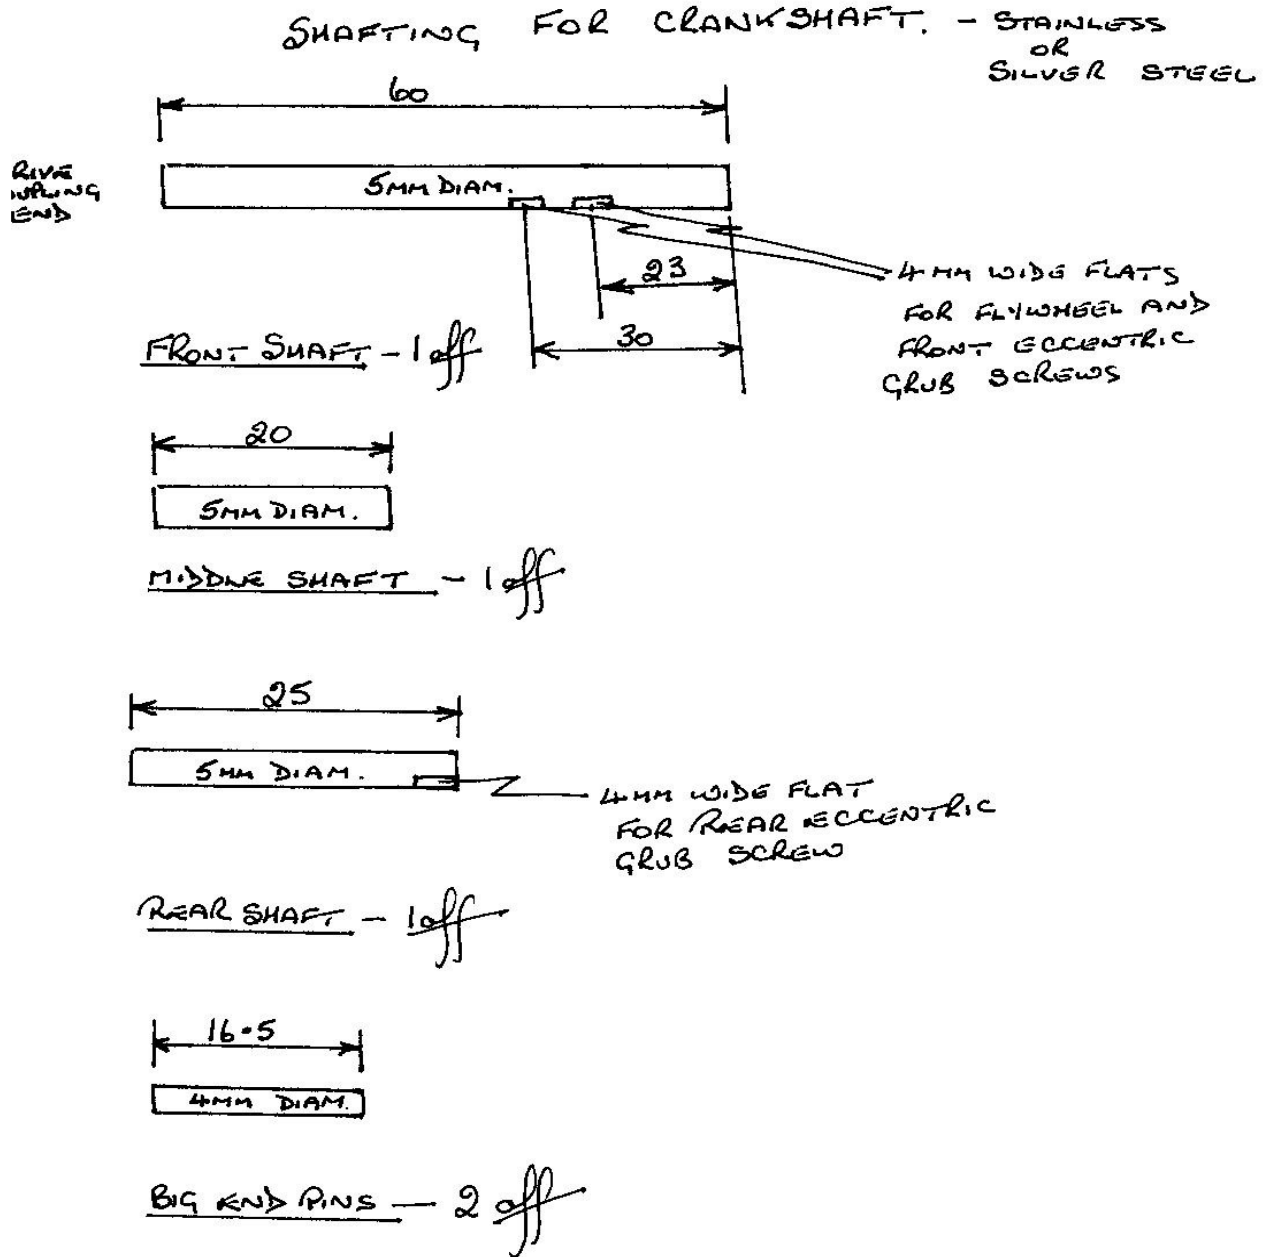 SHAFTING FOR CRANKSHAFT. - STAINLESS
OR
SILVER STEEL
60
RIVE
UPLING
END
5MM DIAM.
23
30
4MM WIDE FLATS
FOR FLYWHEEL AND
FRONT ECCENTRIC
GRUB SCREWS
FRONT SHAFT - 1 off
20
5MM DIAM.
MIDDLE SHAFT - 1 off
25
5MM DIAM.
4MM WIDE FLAT
FOR REAR ECCENTRIC
GRUB SCREW
REAR SHAFT - 1 off
16.5
4MM DIAM.
BIG END PINS - 2 off